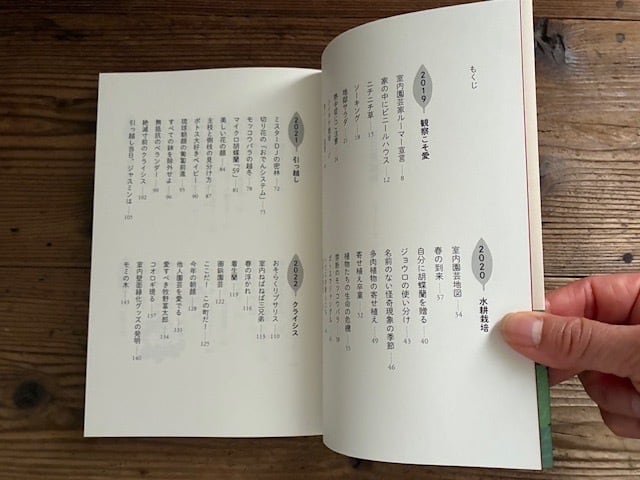 もくじ
2019 観察こそ愛
室内園芸家ルーマー宣言――8
家の中にビニールハウス――12
ニチニチ草――15
ソーキング――18
地獄サウダ――21
2020 水耕栽培
室内園芸地図――34
春の到来――37
自分に胡蝶蘭を贈る――40
ジョウロの使い分け――43
名前のない怪奇現象の季節――46
多肉植物の寄せ植え――49
寄せ植え卒業――52
植物たちの生命の危機――55
禁断のモッコウバラ――58
2021 引っ越し
ミスターDJの密林――72
切り花の「おでんシステム」――75
モッコウバラの越冬――78
マイクロ胡蝶蘭「59」――81
美しい花の顔――84
主枝と側枝の見分け方――87
ポトス大好きベイビー――90
琉球朝顔の葡萄前進――93
すべての鉢を除外せよ――96
無抵抗のベランダー――99
絶滅寸前のクライシス――102
引っ越し当日、ジャスミンは――105
2022 クライシス
おそらくリプサリス――110
室内ねばねば三兄弟――113
春の浮かれ――116
着生蘭――119
画鋲園芸――122
ここだ！この町だ！――125
今年の朝顔――128
他人園芸を愛でる――131
愛すべき牧野富太郎――134
コオロギ現る――137
室内壁面緑化グッズの発明――140
モミの木――143